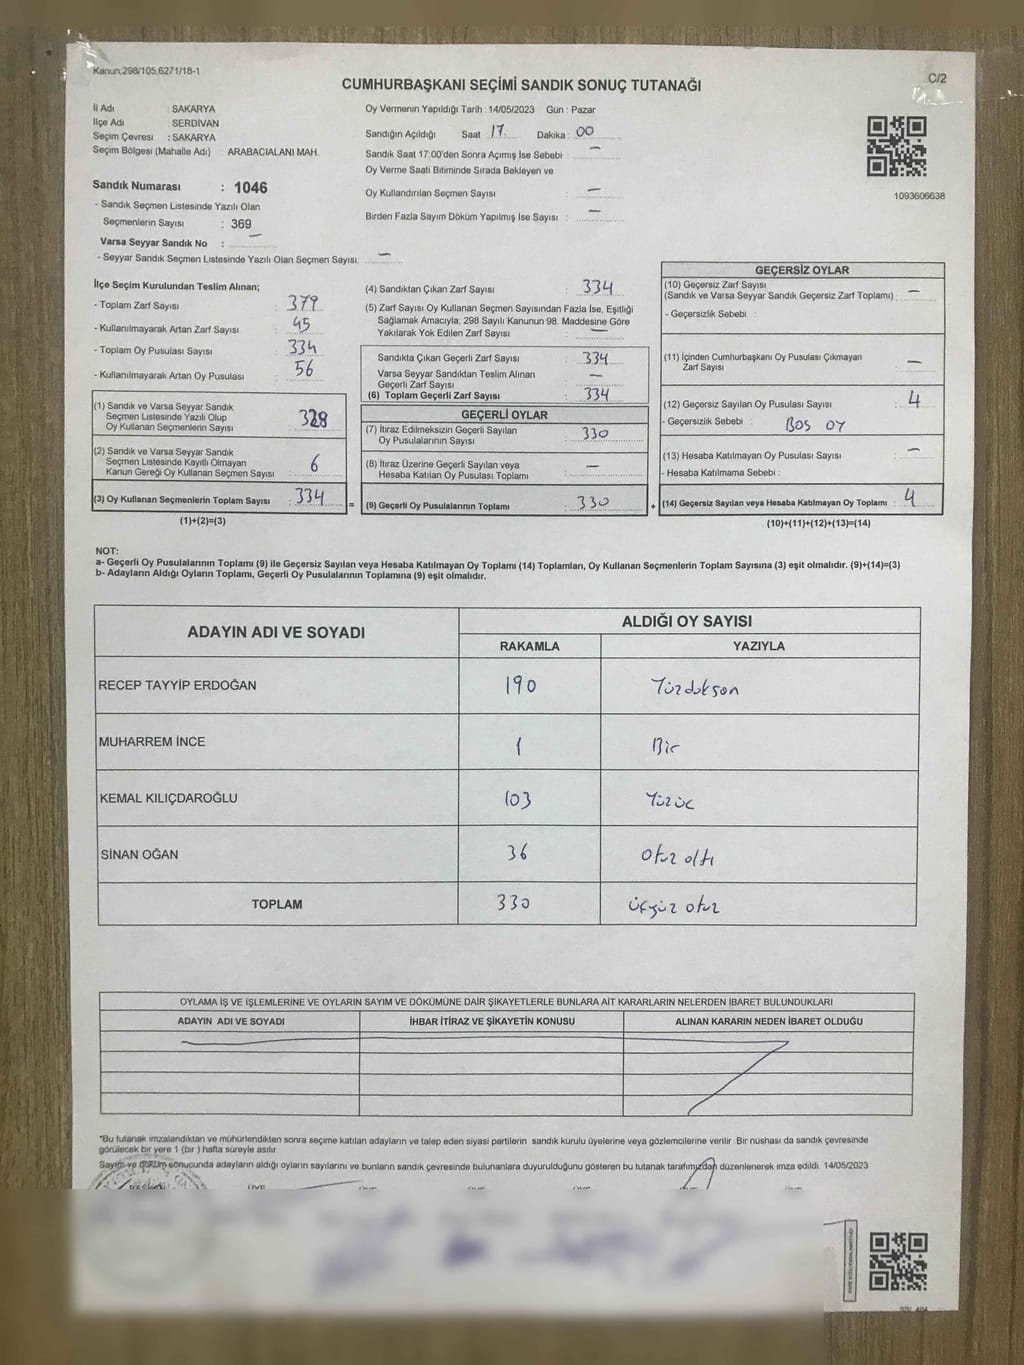 Kanun,298/105,6271/18-1
C/2
CUMHURBAŞKANI SEÇİMİ SANDIK SONUÇ TUTANAĞI
İl Adı : SAKARYA
İlçe Adı : SERDİVAN
Seçim Çevresi : SAKARYA
Seçim Bölgesi (Mahalle Adı) : ARABACIALANI MAH.
Sandık Numarası : 1046
- Sandık Seçmen Listesinde Yazılı Olan
Seçmenlerin Sayısı : 369
Varsa Seyyar Sandık No : —
- Seyyar Sandık Seçmen Listesinde Yazılı Olan Seçmen Sayısı: —
Oy Vermenin Yapıldığı Tarih : 14/05/2023 Gün : Pazar
Sandığın Açıldığı Saat 17 Dakika : 00
Sandık Saat 17:00'den Sonra Açımış İse Sebebi : —
Oy Verme Saati Bitiminde Sırada Bekleyen ve
Oy Kullandırılan Seçmen Sayısı : —
Birden Fazla Sayım Döküm Yapılmış İse Sayısı : —
1093606638
İlçe Seçim Kurulundan Teslim Alınan;
- Toplam Zarf Sayısı : 379
- Kullanılmayarak Artan Zarf Sayısı : 45
- Toplam Oy Pusulası Sayısı : 334
- Kullanılmayarak Artan Oy Pusulası : 56
(1) Sandık ve Varsa Seyyar Sandık
Seçmen Listesinde Yazılı Olup
Oy Kullanan Seçmenlerin Sayısı : 328
(2) Sandık ve Varsa Seyyar Sandık
Seçmen Listesinde Kayıtlı Olmayan
Kanun Gereği Oy Kullanan Seçmen Sayısı : 6
(3) Oy Kullanan Seçmenlerin Toplam Sayısı : 334
(1)+(2)=(3)
(4) Sandıktan Çıkan Zarf Sayısı : 334
(5) Zarf Sayısı Oy Kullanan Seçmen Sayısından Fazla İse, Eşitliği
Sağlamak Amacıyla, 298 Sayılı Kanunun 98. Maddesine Göre
Yakılarak Yok Edilen Zarf Sayısı : —
Sandıkta Çıkan Geçerli Zarf Sayısı : 334
Varsa Seyyar Sandıktan Teslim Alınan
Geçerli Zarf Sayısı : —
(6) Toplam Geçerli Zarf Sayısı : 334
GEÇERLİ OYLAR
(7) İtiraz Edilmeksizin Geçerli Sayılan
Oy Pusulalarının Sayısı : 330
(8) İtiraz Üzerine Geçerli Sayılan veya
Hesaba Katılan Oy Pusulası Toplamı : —
= (9) Geçerli Oy Pusulalarının Toplamı : 330
GEÇERSİZ OYLAR
(10) Geçersiz Zarf Sayısı
(Sandık ve Varsa Seyyar Sandık Geçersiz Zarf Toplamı) : —
- Geçersizlik Sebebi :
(11) İçinden Cumhurbaşkanı Oy Pusulası Çıkmayan
Zarf Sayısı : —
(12) Geçersiz Sayılan Oy Pusulası Sayısı : 4
- Geçersizlik Sebebi : BOS OY
(13) Hesaba Katılmayan Oy Pusulası Sayısı : —
- Hesaba Katılmama Sebebi :
+ (14) Geçersiz Sayılan veya Hesaba Katılmayan Oy Toplamı : 4
(10)+(11)+(12)+(13)=(14)
NOT:
a- Geçerli Oy Pusulalarının Toplamı (9) ile Geçersiz Sayılan veya Hesaba Katılmayan Oy Toplamı (14) Toplamları, Oy Kullanan Seçmenlerin Toplam Sayısına (3) eşit olmalıdır. (9)+(14)=(3)
b- Adayların Aldığı Oyların Toplamı, Geçerli Oy Pusulalarının Toplamına (9) eşit olmalıdır.
ADAYIN ADI VE SOYADI
ALDIĞI OY SAYISI
RAKAMLA YAZIYLA
RECEP TAYYİP ERDOĞAN 190 Yüzdoksan
MUHARREM İNCE 1 Bir
KEMAL KILIÇDAROĞLU 103 Yüzüç
SİNAN OĞAN 36 Otuz altı
TOPLAM 330 üçyüz otuz
OYLAMA İŞ VE İŞLEMLERİNE VE OYLARIN SAYIM VE DÖKÜMÜNE DAİR ŞİKAYETLERLE BUNLARA AİT KARARLARIN NELERDEN İBARET BULUNDUKLARI
ADAYIN ADI VE SOYADI İHBAR İTİRAZ VE ŞİKAYETİN KONUSU ALINAN KARARIN NEDEN İBARET OLDUĞU
*Bu tutanak imzalandıktan ve mühürlendikten sonra seçime katılan adayların ve talep eden siyasi partilerin sandık kurulu üyelerine veya gözlemcilerine verilir. Bir nüshası da sandık çevresinde
görülecek bir yere 1 (bir ) hafta süreyle asılır.
Sayım ve döküm sonucunda adayların aldığı oyların sayılarını ve bunların sandık çevresinde bulunanlara duyurulduğunu gösteren bu tutanak tarafımızdan düzenlenerek imza edildi. 14/05/2023